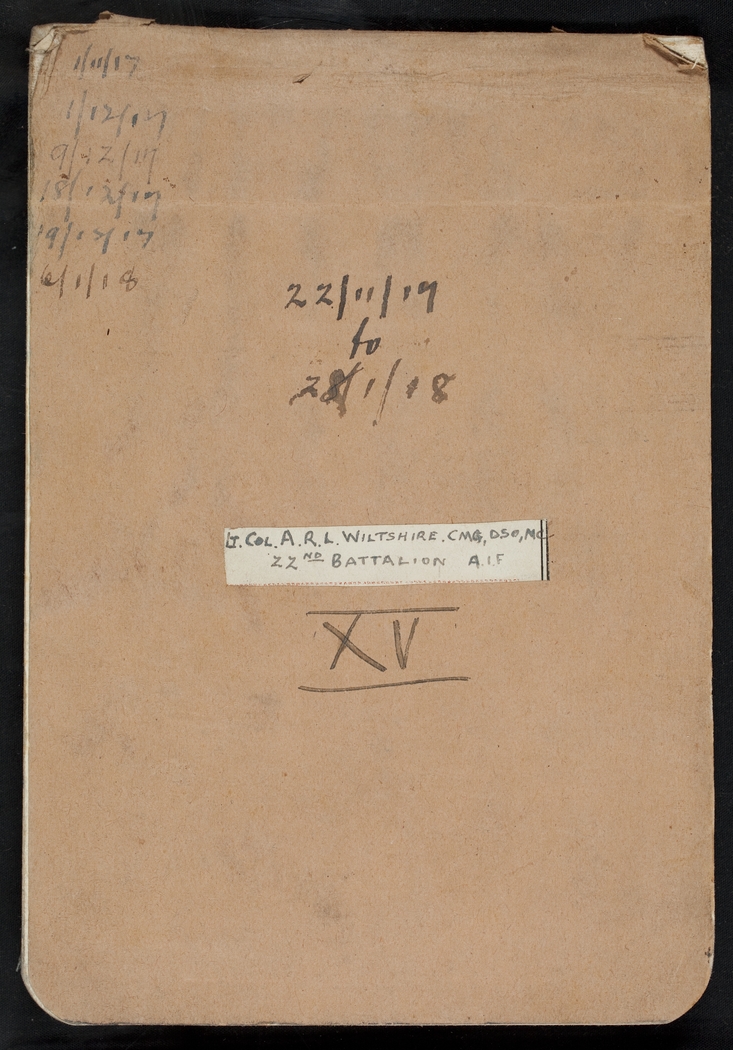 1/11/17
1/12/17
9/12/17
18/12/17
19/12/17
6/1/18
22/11/17
to
28/1/18
Lt. COL. A.R.L. WILTSHIRE. CMG, DSO, MC
22ND BATTALION A.I.F
XV